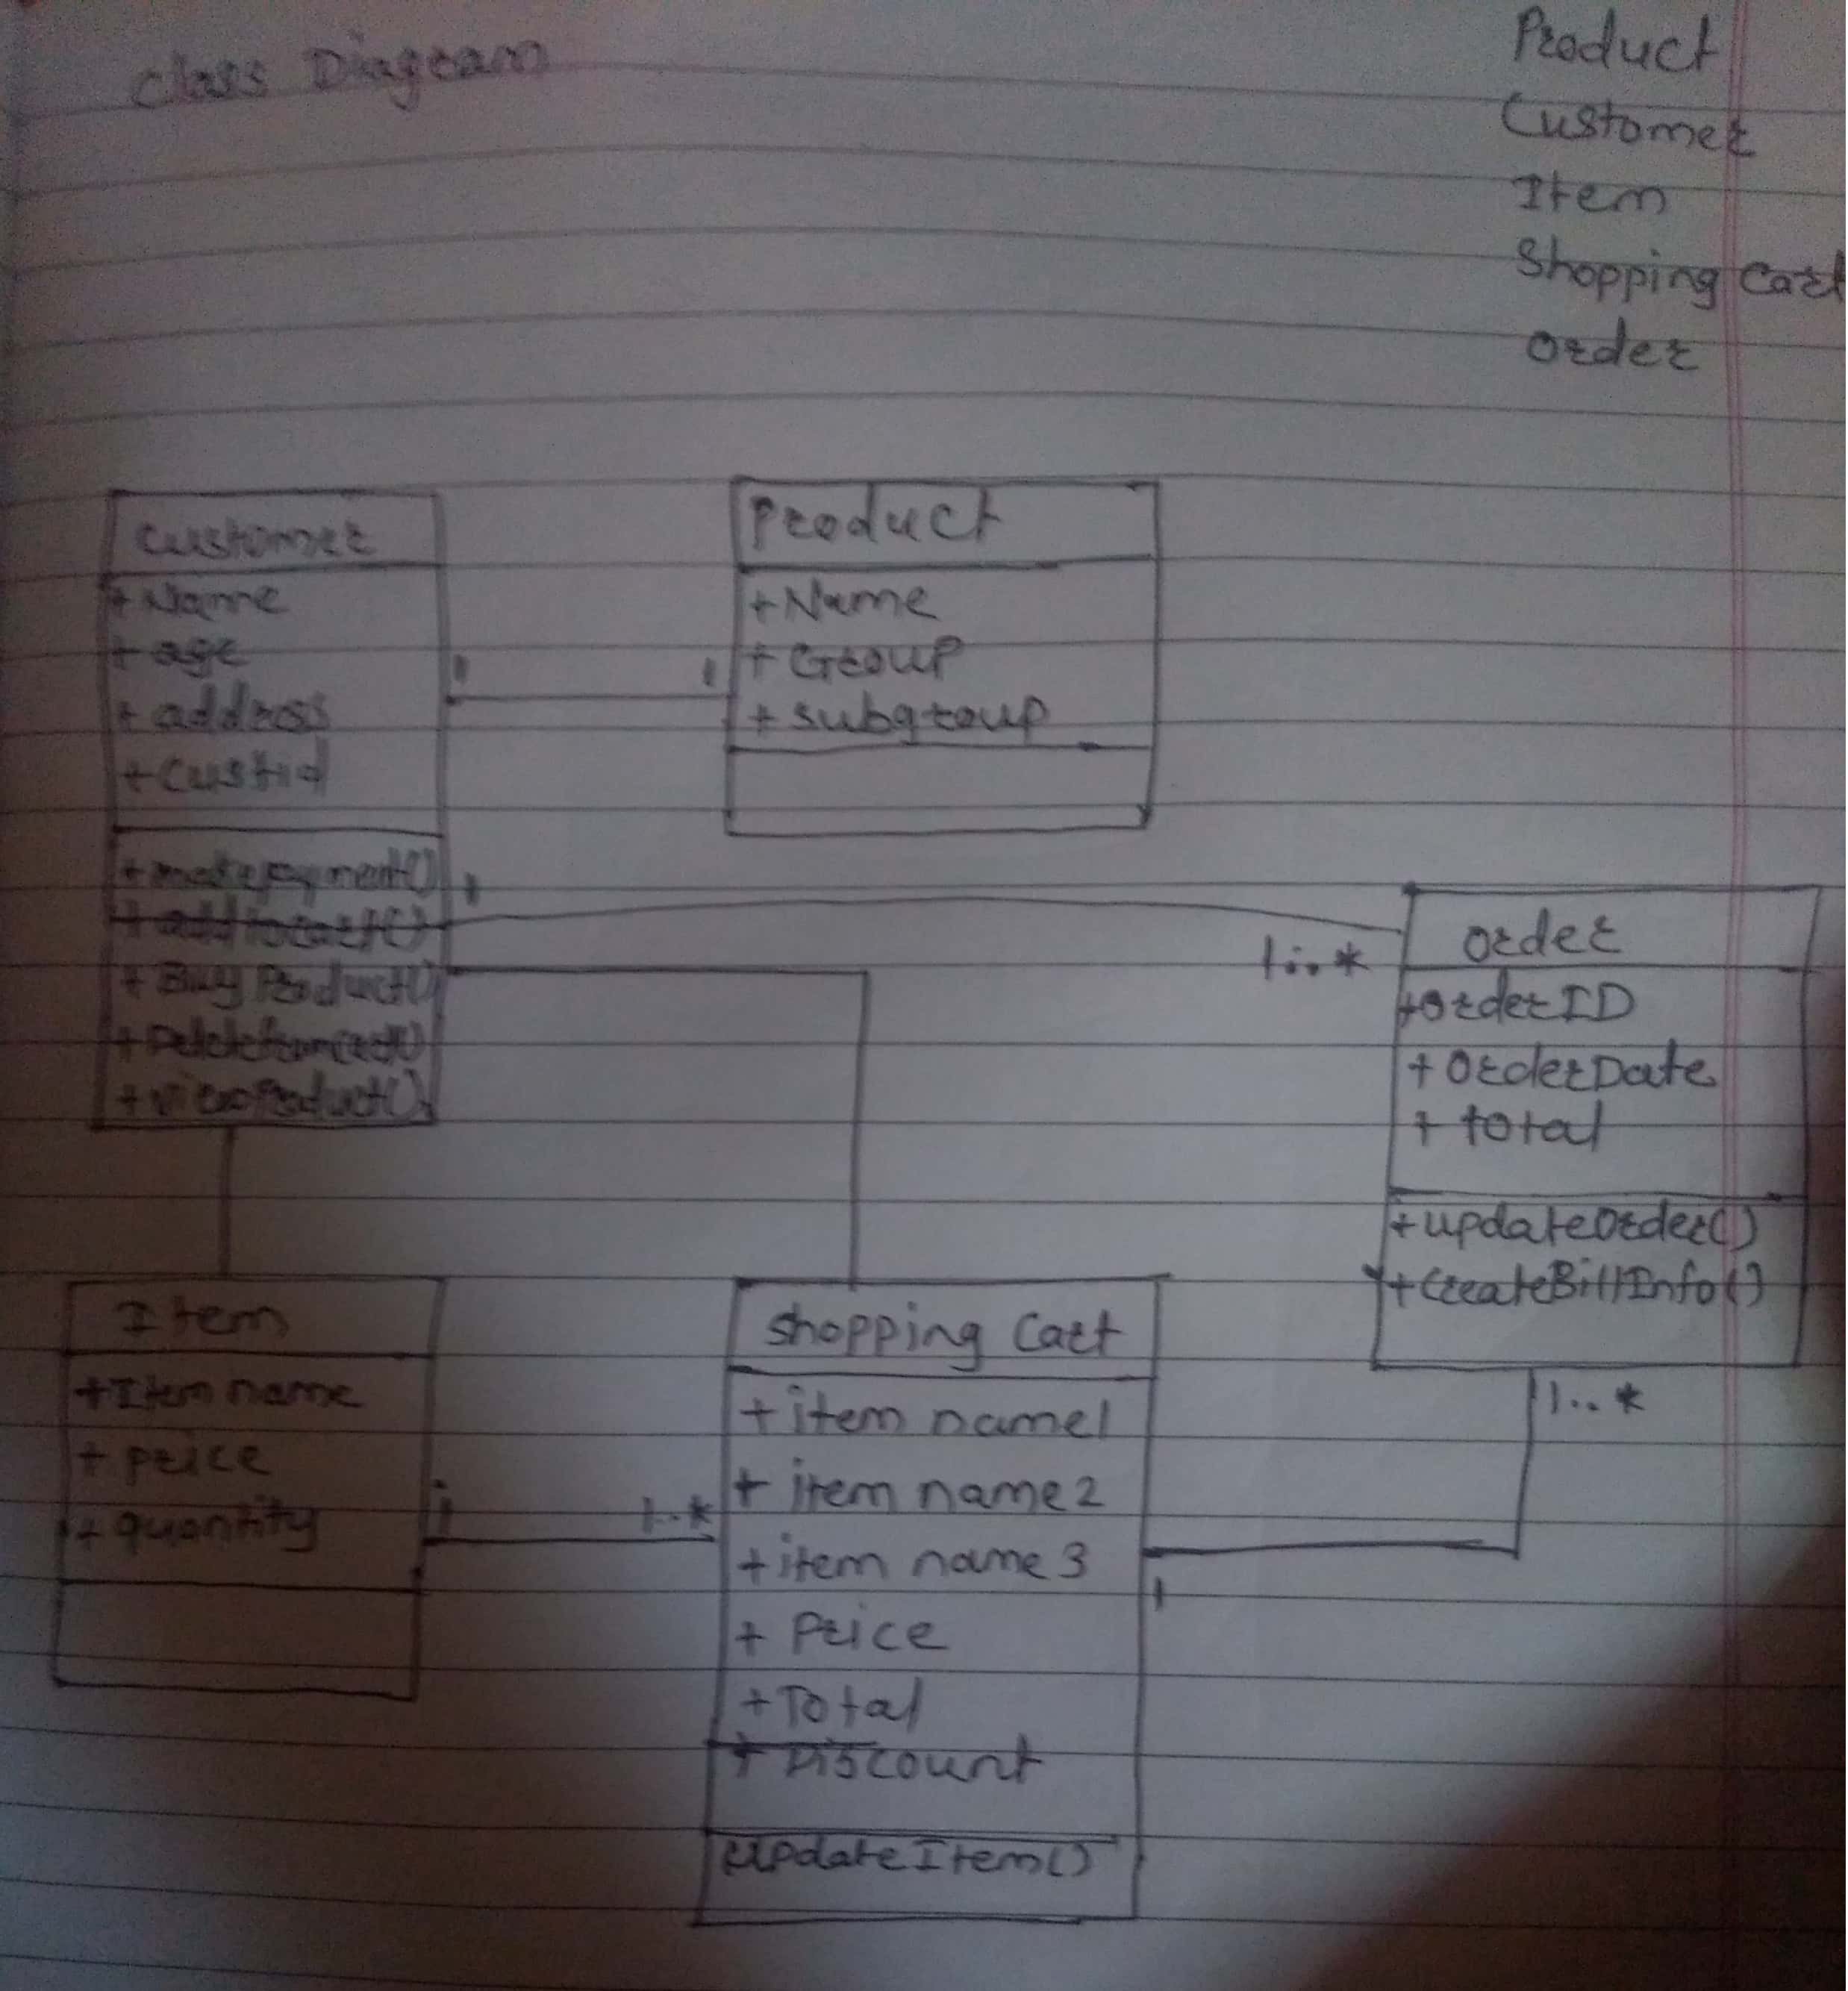 Class Diagram
Product
Customer
Item
Shopping Cart
Order
Customer
+ Name
+ age
+ address
+ Custid
+ makepayment()
+ addtocart()
+ Buy Product()
+ Deletefromcart()
+ viewProduct()
1
1
Product
+ Name
+ Group
+ subgroup
1
1...*
Order
+ OrderID
+ OrderDate
+ total
+ updateOrder()
+ CreateBillInfo()
1..*
Item
+ Item name
+ price
+ quantity
1
1..*
Shopping Cart
+ item name1
+ item name2
+ item name 3
+ Price
+ Total
+ Discount
updateItem()
1